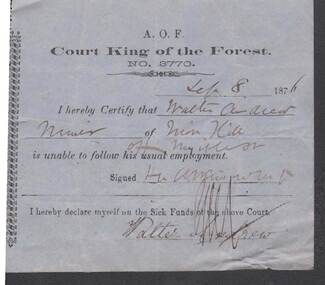 A. O. F.
Court King of the Forest.
NO. 3770.
Sep. 8 1876
I hereby Certify that Walter Andrew
Miner of Iron Hill
is unable to follow his usual employment.
Signed
I hereby declare myself on the Sick Funds of the above Court.
Walter Andrew